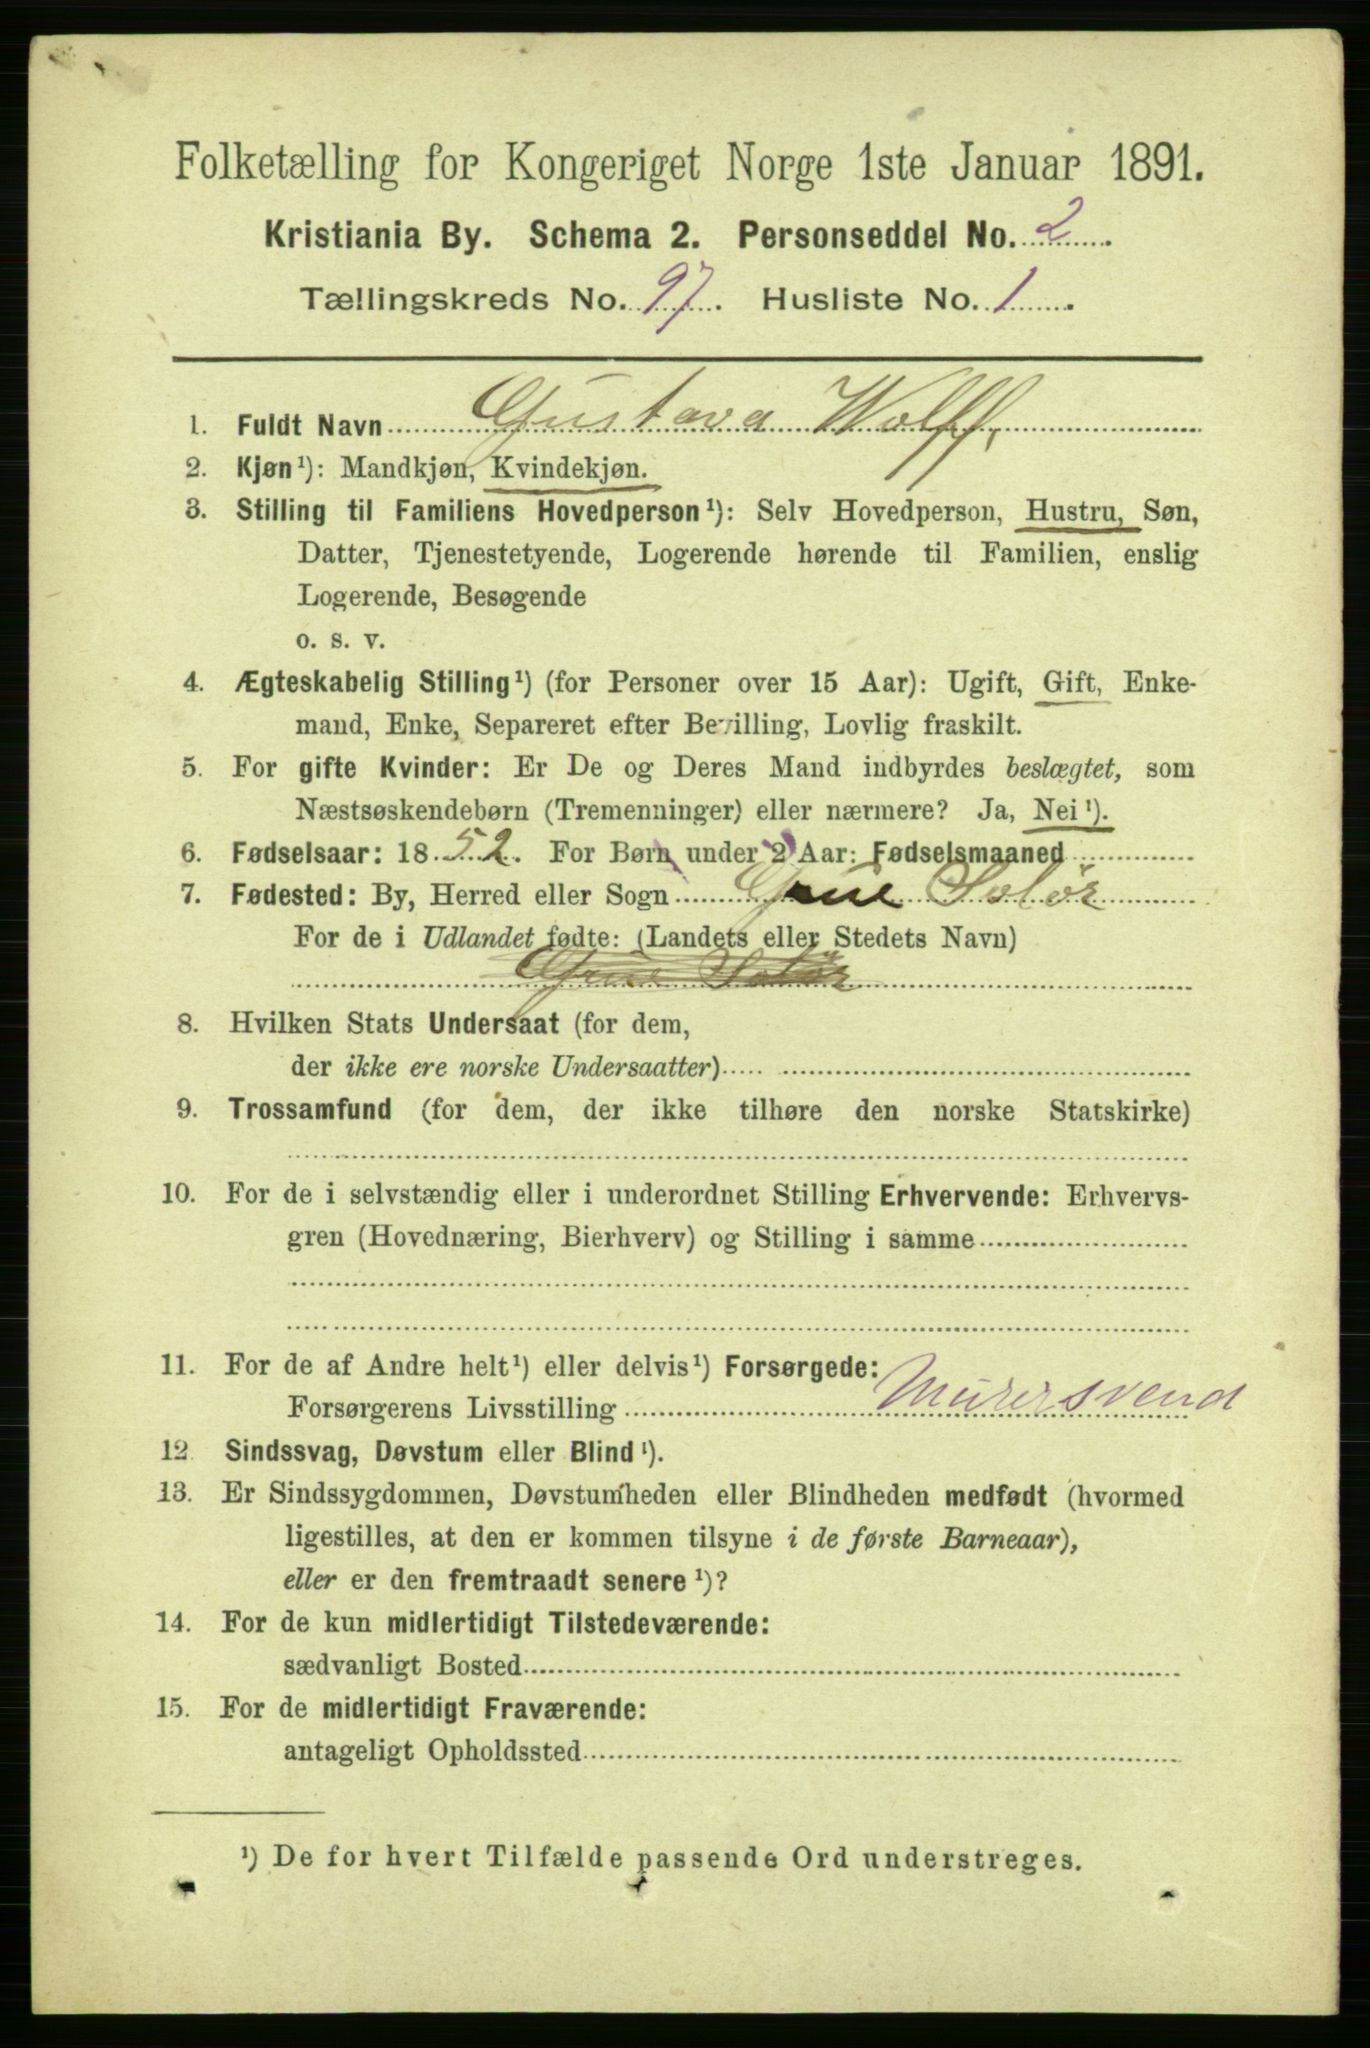 Folketælling for Kongeriget Norge 1ste Januar 1891.
Kristiania By. Schema 2. Personseddel No. 2.
Tællingskreds No. 97. Husliste No. 1.
1. Fuldt Navn Gustava Wolff,
2. Kjøn¹): Mandkjøn, Kvindekjøn.
3. Stilling til Familiens Hovedperson¹): Selv Hovedperson, Hustru, Søn,
Datter, Tjenestetyende, Logerende hørende til Familien, enslig
Logerende, Besøgende
o. s. v.
4. Ægteskabelig Stilling¹) (for Personer over 15 Aar): Ugift, Gift, Enke-
mand, Enke, Separeret efter Bevilling, Lovlig fraskilt.
5. For gifte Kvinder: Er De og Deres Mand indbyrdes beslægtet, som
Næstsøskendebørn (Tremenninger) eller nærmere? Ja, Nei¹).
6. Fødselsaar: 1852. For Børn under 2 Aar: Fødselsmaaned
7. Fødested: By, Herred eller Sogn Grue Solør
For de i Udlandet fødte: (Landets eller Stedets Navn)
Grue Solør
8. Hvilken Stats Undersaat (for dem,
der ikke ere norske Undersaatter)
9. Trossamfund (for dem, der ikke tilhøre den norske Statskirke)
10. For de i selvstændig eller i underordnet Stilling Erhvervende: Erhvervs-
gren (Hovednæring, Bierhverv) og Stilling i samme
11. For de af Andre helt¹) eller delvis¹) Forsørgede:
Forsørgerens Livsstilling Murersvend
12. Sindssvag, Døvstum eller Blind¹).
13. Er Sindssygdommen, Døvstumheden eller Blindheden medfødt (hvormed
ligestilles, at den er kommen tilsyne i de første Barneaar),
eller er den fremtraadt senere¹)?
14. For de kun midlertidigt Tilstedeværende:
sædvanligt Bosted
15. For de midlertidigt Fraværende:
antageligt Opholdssted
¹) De for hvert Tilfælde passende Ord understreges.